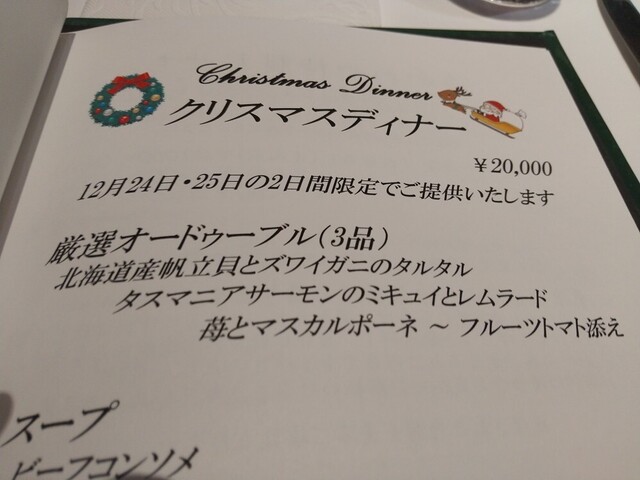 Christmas Dinner
クリスマスディナー
￥20,000
12月24日・25日の2日間限定でご提供いたします
厳選オードゥーブル（3品）
北海道産帆立貝とズワイガニのタルタル
タスマニアサーモンのミキュイとレムラード
苺とマスカルポーネ ～ フルーツトマト添え
スープ
ビーフコンソメ